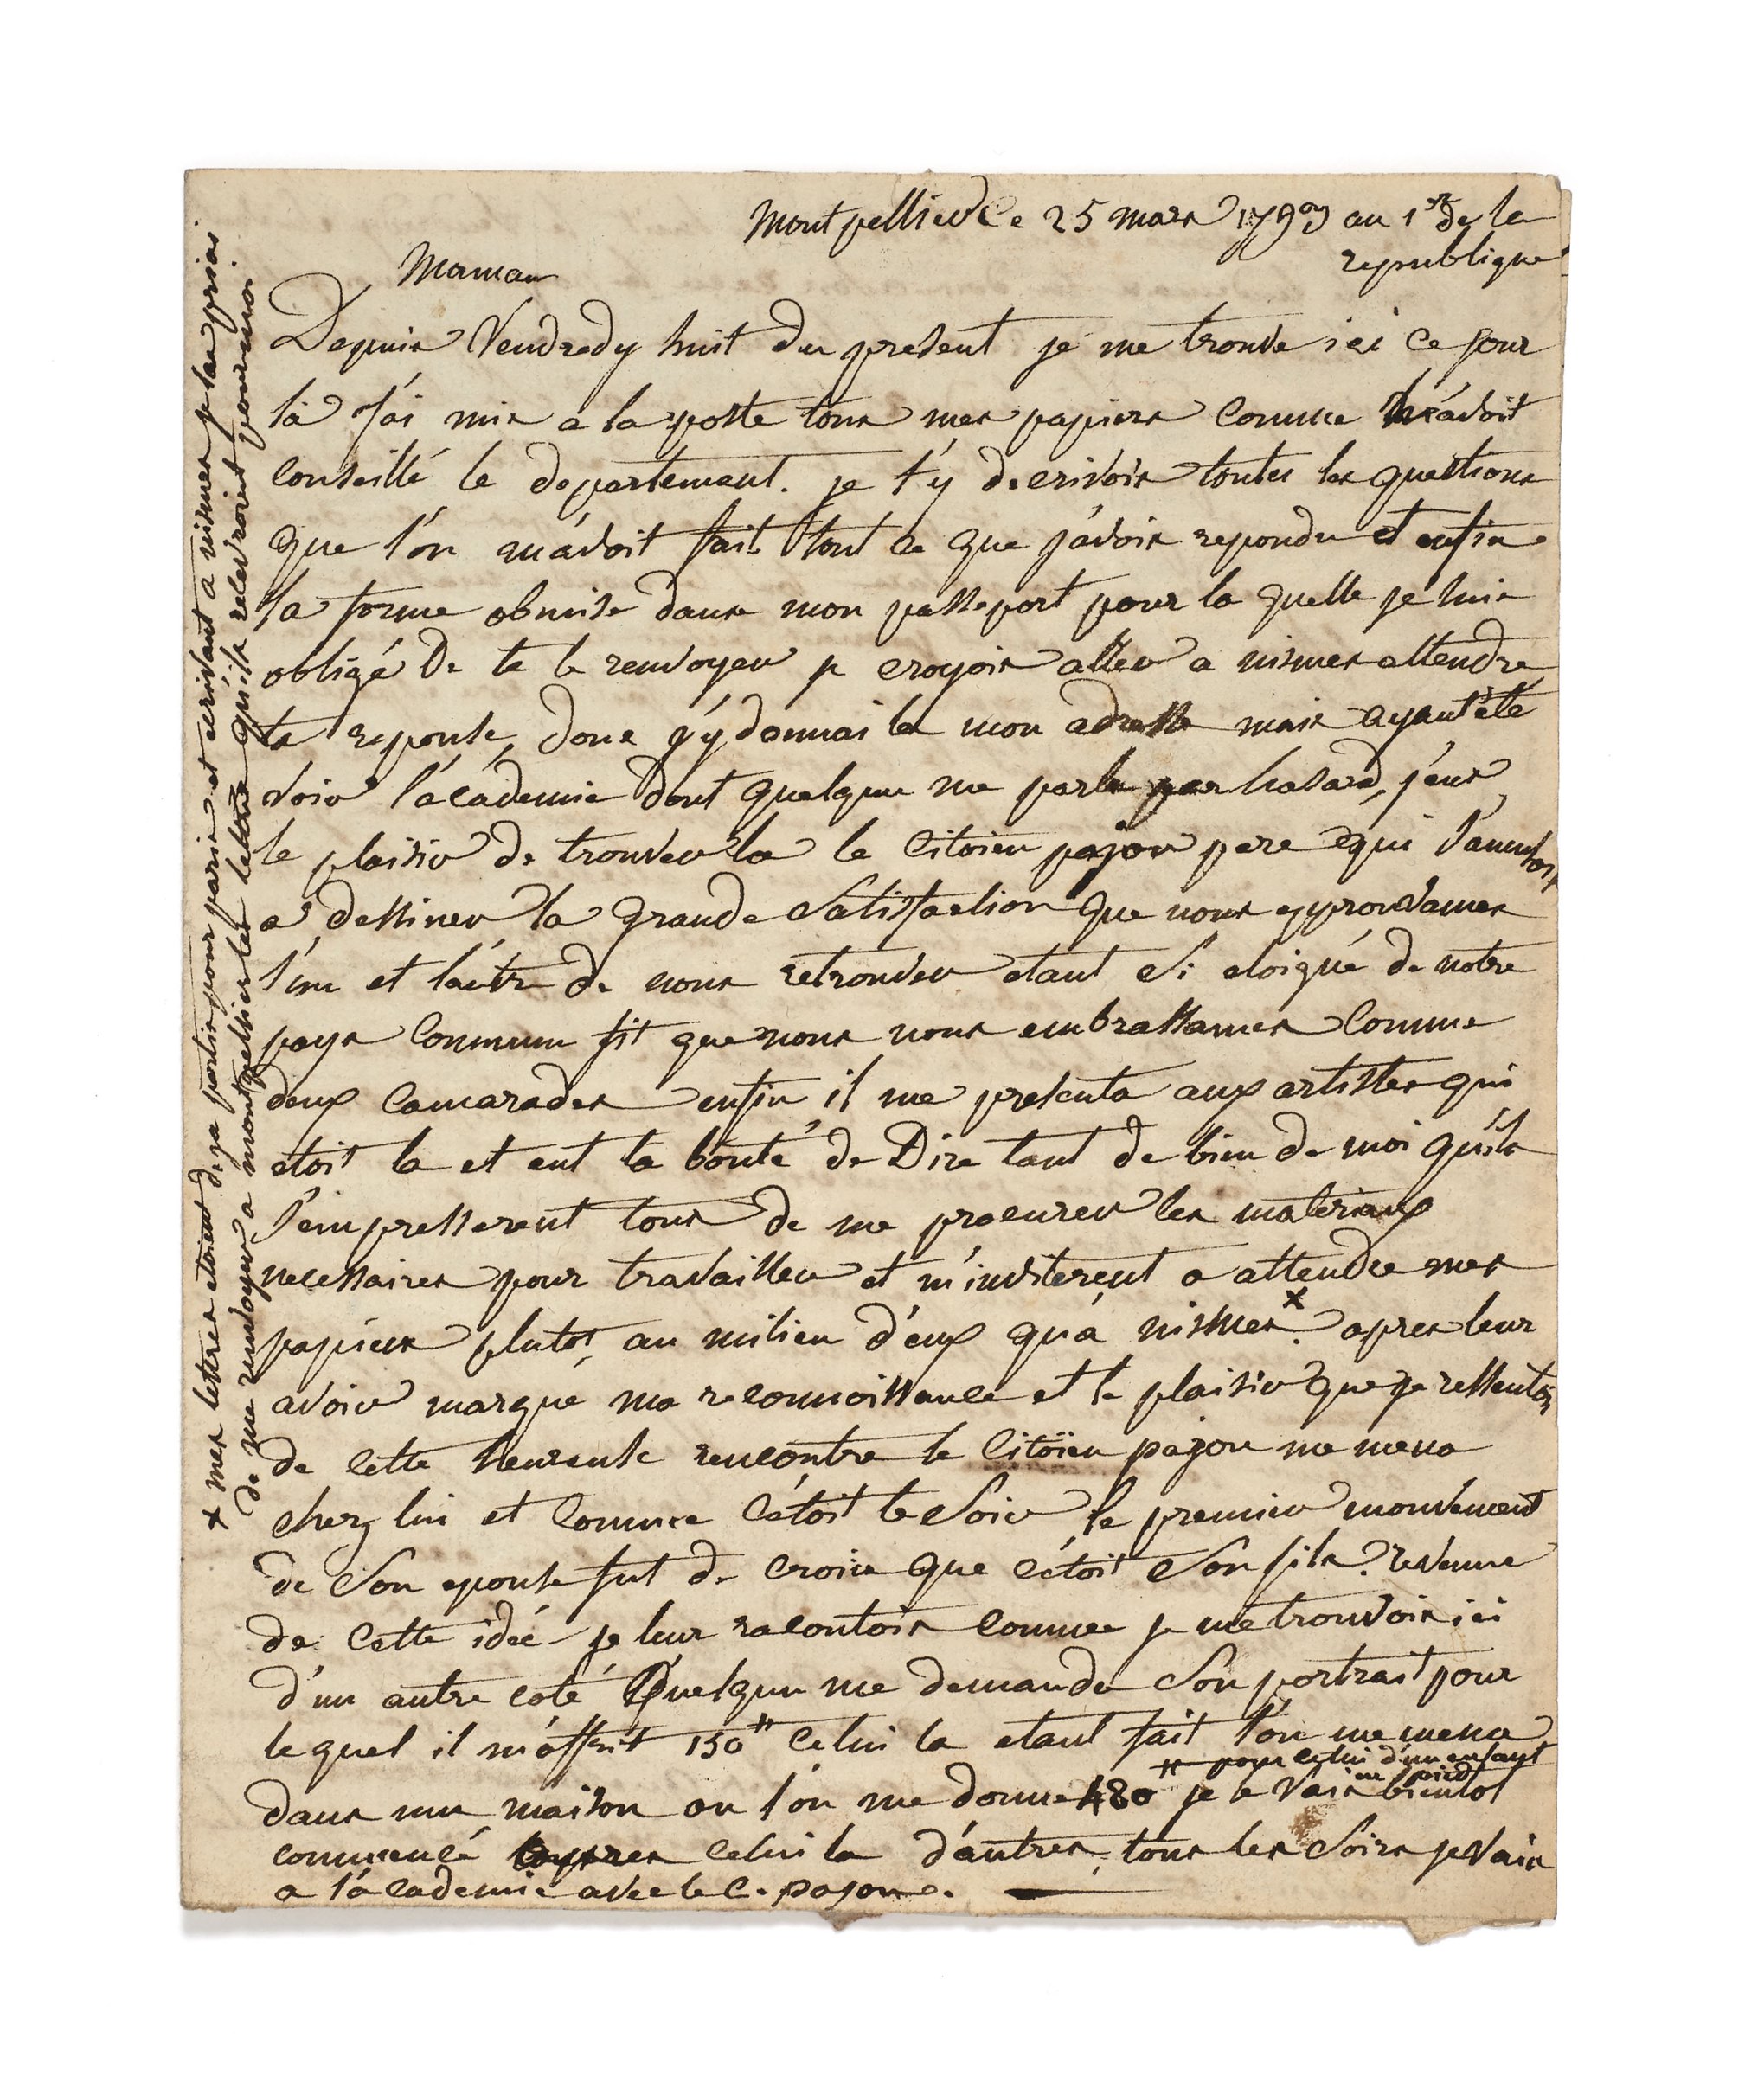 Montpellier Ce 25 mars 1793 an 1er de la
republique
Maman
Depuis Vendredy huit du present je me trouve ici ce jour
là J'ai mis a la poste tous mes papiers comme m'avoit
conseillé le departement. je t'y decrivois toutes les questions
que l'on m'avoit fait tout ce que j'avois repondu et enfin
la forme obmise dans mon passeport pour la quelle je suis
obligé De te le renvoyer je croyois aller a nismes attendre
ta reponse, donc j'y donnai les mon adresse mais ayant été
voir l'académie dont quelqu'un me parla par hasard, j'eus
le plaisir de trouver la le Citoien pajou pere qui s'amusoit
a dessiner la grande satisfaction que nous epprouvames
l'un et l'autre de nous retrouver etant si eloigné de notre
pays commun fit que nous nous embrassames comme
deux camarades enfin il me presenta aux artistes qui
etoit la et eut la bonté de Dire tant de bien de moi qu'ils
s'empresserent tous de me procurer les materiaux
necessaires pour travailler et m'inviterent a attendre mes
papiers plutot, au milieu d'eux qu'a nismes.× apres leur
avoir marqué ma reconnoissance et le plaisir que je ressentois
de cette heureuse rencontre le Citoïen pajou me mena
chez lui et comme c'étoit le soir le premier mouvement
de son epouse fut de croire que c'étoit son fils. revenue
de cette idée je leur racontois comme je me trouvois ici
d'un autre coté Quelqu'un me demanda son portrait pour
le quel il m'offrit 150# celui la etant fait l'on me mena
dans une maison ou l'on me donne 480# pour celui d'un enfant en pied je le vais bientot
commencé apres celui la d'autres, tous les soirs je vais
a l'academie avec le C. pajou.
× mes lettres etoient deja partis pour paris et ecrivant a nismes j'les priai
de me renvoyer a montpellier les lettres qu'ils recevroient pour moi